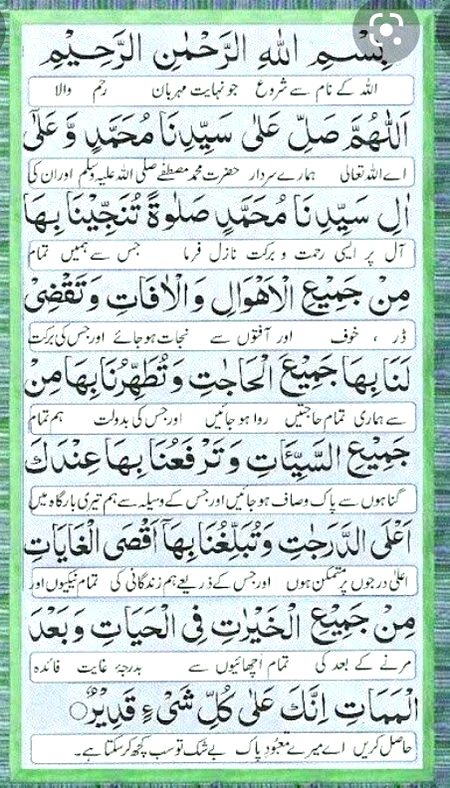 بِسْمِ اللهِ الرَّحْمٰنِ الرَّحِيْمِ
اللہ کے نام سے شروع جو نہایت مہربان رحم والا
اَللّٰهُمَّ صَلِّ عَلٰى سَيِّدِنَا مُحَمَّدٍ وَّعَلٰٓى
اے اللہ تعالیٰ ہمارے سردار حضرت محمد مصطفےٰ صلی اللہ علیہ وسلم اور ان کی
اٰلِ سَيِّدِنَا مُحَمَّدٍ صَلٰوةً تُنَجِّيْنَا بِهَا
آل پر ایسی رحمت و برکت نازل فرما جس سے ہمیں تمام
مِنْ جَمِيْعِ الْاَهْوَالِ وَالْاٰفَاتِ وَتَقْضِىْ
ڈر ، خوف اور آفتوں سے نجات ہو جائے اور جس کی برکت
لَنَا بِهَا جَمِيْعَ الْحَاجٰتِ وَتُطَهِّرُنَا بِهَا مِنْ
سے ہماری تمام حاجتیں روا ہو جائیں اور جس کی بدولت ہم تمام
جَمِيْعِ السَّيِّاٰتِ وَتَرْفَعُنَا بِهَا عِنْدَكَ
گناہوں سے پاک وصاف ہو جائیں اور جس کے وسیلہ سے ہم تیری بارگاہ میں
اَعْلَى الدَّرَجٰتِ وَتُبَلِّغُنَا بِهَآ اَقْصَى الْغَايَاتِ
اعلیٰ درجوں پر متمکن ہوں اور جس کے ذریعے ہم زندگانی کی تمام نیکیوں اور
مِنْ جَمِيْعِ الْخَيْرٰتِ فِى الْحَيَاتِ وَبَعْدَ
مرنے کے بعد کی تمام اچھائیوں سے بدرجۂ غایت فائدہ
الْمَمَاتِ اِنَّكَ عَلٰى كُلِّ شَىْءٍ قَدِيْرٌ
حاصل کریں اے میرے معبود پاک بے شک تو سب کچھ کر سکتا ہے۔